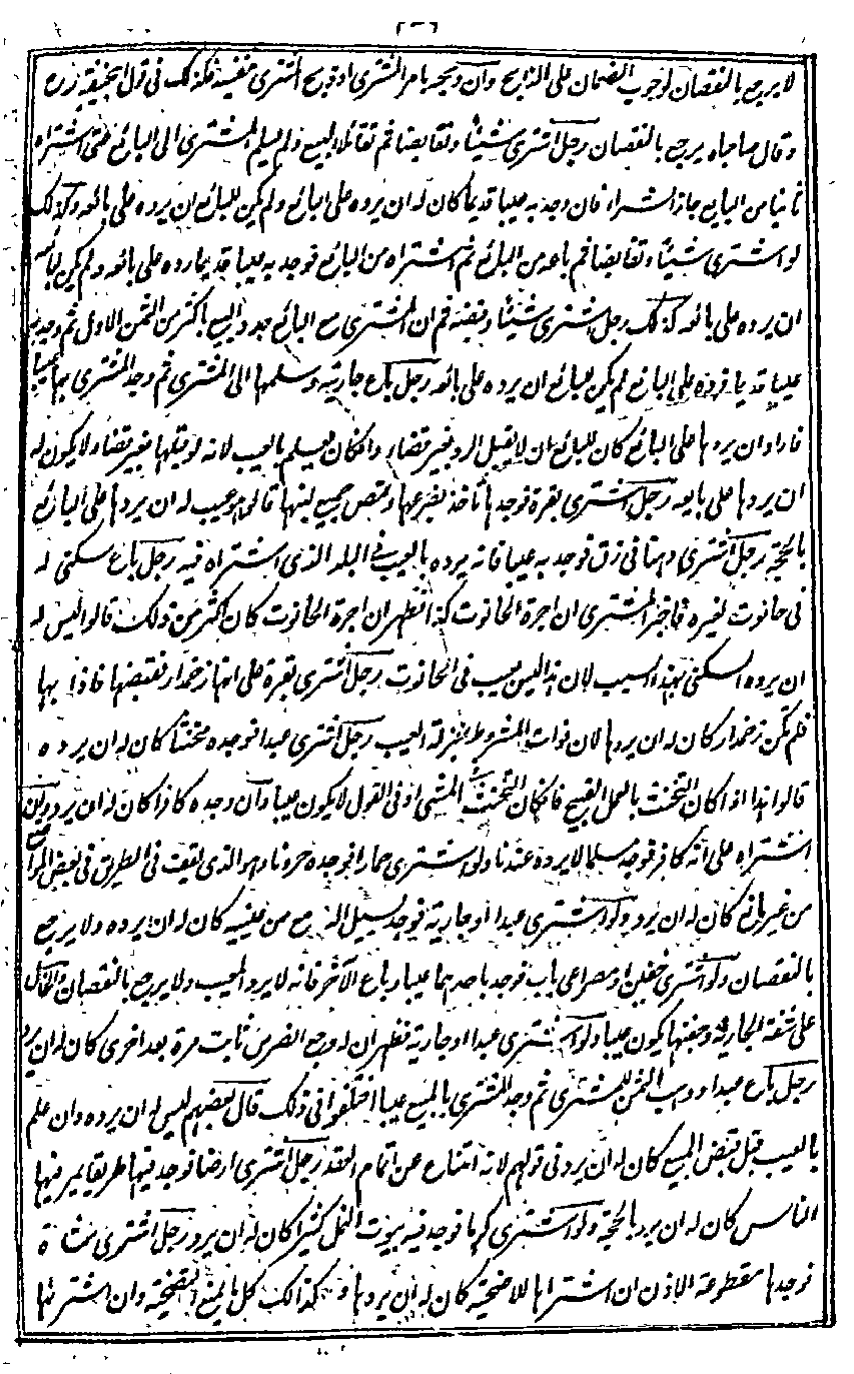 لا يرجع بالنقصان لوجوب الضمان على الذابح وان ذبحه بامر المشترى او ذبح المشترى بنفسه فكذلك فى قول ابيحنيفة رح
وقال صاحباه يرجع بالنقصان رجل اشترى شيئا وتقابضا ثم تقائلا البيع ولم يسلم المشترى الى البائع حتى اشتراه
ثانيا من البايع جاز الشراء فان وجد به عيبا قديما كان له ان يرده على البائع ولم يكن للبائع ان يرده على بائعه وكذلك
لو اشترى شيئا وتقابضا ثم باعه من البائع ثم اشتراه من البائع فوجد به عيبا قديما رده على بائعه ولم يكن لبائعه
ان يرده على بائعه كذلك رجل اشترى شيئا وقبضه ثم ان المشترى مع البائع جددا البيع باكثر من الثمن الاول ثم وجد به
عيبا قديما فرده على البائع لم يكن للبائع ان يرده على بائعه رجل باع جارية وسلمها الى المشترى ثم وجد المشترى بها عيبا
فاراد ان يردها على البائع كان للبائع ان لا يقبل الرد بغير قضاء وان كان يعلم بالعيب لانه لو قبلها بغير قضاء لا يكون له
ان يردها على بايعه رجل اشترى بقرة فوجدها تأخذ بضرعها وتمص جميع لبنها قالوا هو عيب له ان يردها على البائع
بالحجة رجل اشترى دهنا فى زق فوجد به عيبا فانه يرده بالعيب فى البلد الذى اشتراه فيه رجل باع سكنى له
فى حانوت لغيره فاخبر المشترى ان اجرة الحانوت كذا فظهر ان اجرة الحانوت كان اكثر من ذلك قالوا ليس له
ان يرد السكنى بهذا السبب لان هذا ليس بعيب فى الحانوت رجل اشترى بقرة على انها فقبضها فاذا بها
فلم تكن كان له ان يردها لان فوات المشروط بمنزلة العيب رجل اشترى عبدا فوجده مخنثا كان له ان يرده
قالوا هذا اذا كان التخنث بالعمل القبيح فان كان التخنث فى المشى او فى القول لا يكون عيبا وان وجده كافرا كان له ان يرد وان
اشتراه على انه كافر فوجده مسلما لا يرده عندنا ولو اشترى حمارا فوجده حرونا وهو الذى يقف فى الطريق فى بعض المواضع
من غير مانع كان له ان يرد ولو اشترى عبدا او جارية فوجد يسيل الدمع من عينيه كان له ان يرده ولا يرجع
بالنقصان ولو اشترى خفين او مصراعى باب فوجد باحدهما عيبا وباع الآخر فانه لا يرد المعيب ولا يرجع بالنقصان والخال
على شفة الجارية وجفنها يكون عيبا ولو اشترى عبدا او جارية فظهر ان له وجع الضرس ثابت مرة بعد اخرى كان له ان يرد
رجل باع عبدا ووهب الثمن للمشترى ثم وجد المشترى بالمبيع عيبا اختلفوا فى ذلك قال بعضهم ليس له ان يرده وان علم
بالعيب قبل قبض المبيع كان له ان يرد فى قولهم لانه امتناع عن اتمام العقد رجل اشترى ارضا فوجد فيها طريقا يمر فيها
الناس كان له ان يرد بالحجة ولو اشترى كرما فوجد فيه بيوت النمل كثيرا كان له ان يرد رجل اشترى شاة
فوجدها مقطوعة الاذن ان اشتراها للاضحية كان له ان يردها وكذلك كل ما يمنع التضحية وان اشتراها